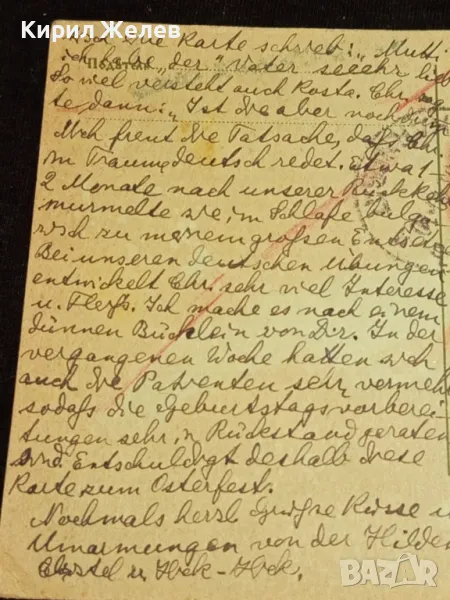 Кирил Желев
die Karte schrieb: „Mutti
ich habe „der" Vater seeehr lieb
So viel versteht auch Kosta. Chr. sag
te dann: „Ist die aber noch
Mich freut die Tatsache, daß Chr.
im Traum deutsch redet. Etwa 1-
2 Monate nach unserer Rückkehr
murmelte sie im Schlafe bulga-
risch zu meinem großen Entsetz
Bei unseren deutschen Übungen
entwickelt Chr. sehr viel Interesse
u. Fleiß. Ich mache es nach einem
dünnen Büchlein von Dir. In der
vergangenen Woche hatten sich
auch die Patienten sehr vermehrt
sodaß die Geburtstagsvorberei-
tungen sehr in Rückstand geraten
sind. Entschuldigt deshalb diese
Karte zum Osterfest.
Nochmals herzl. Grüße Küsse u
Umarmungen von der Hilden
Christel u
bazar.bg